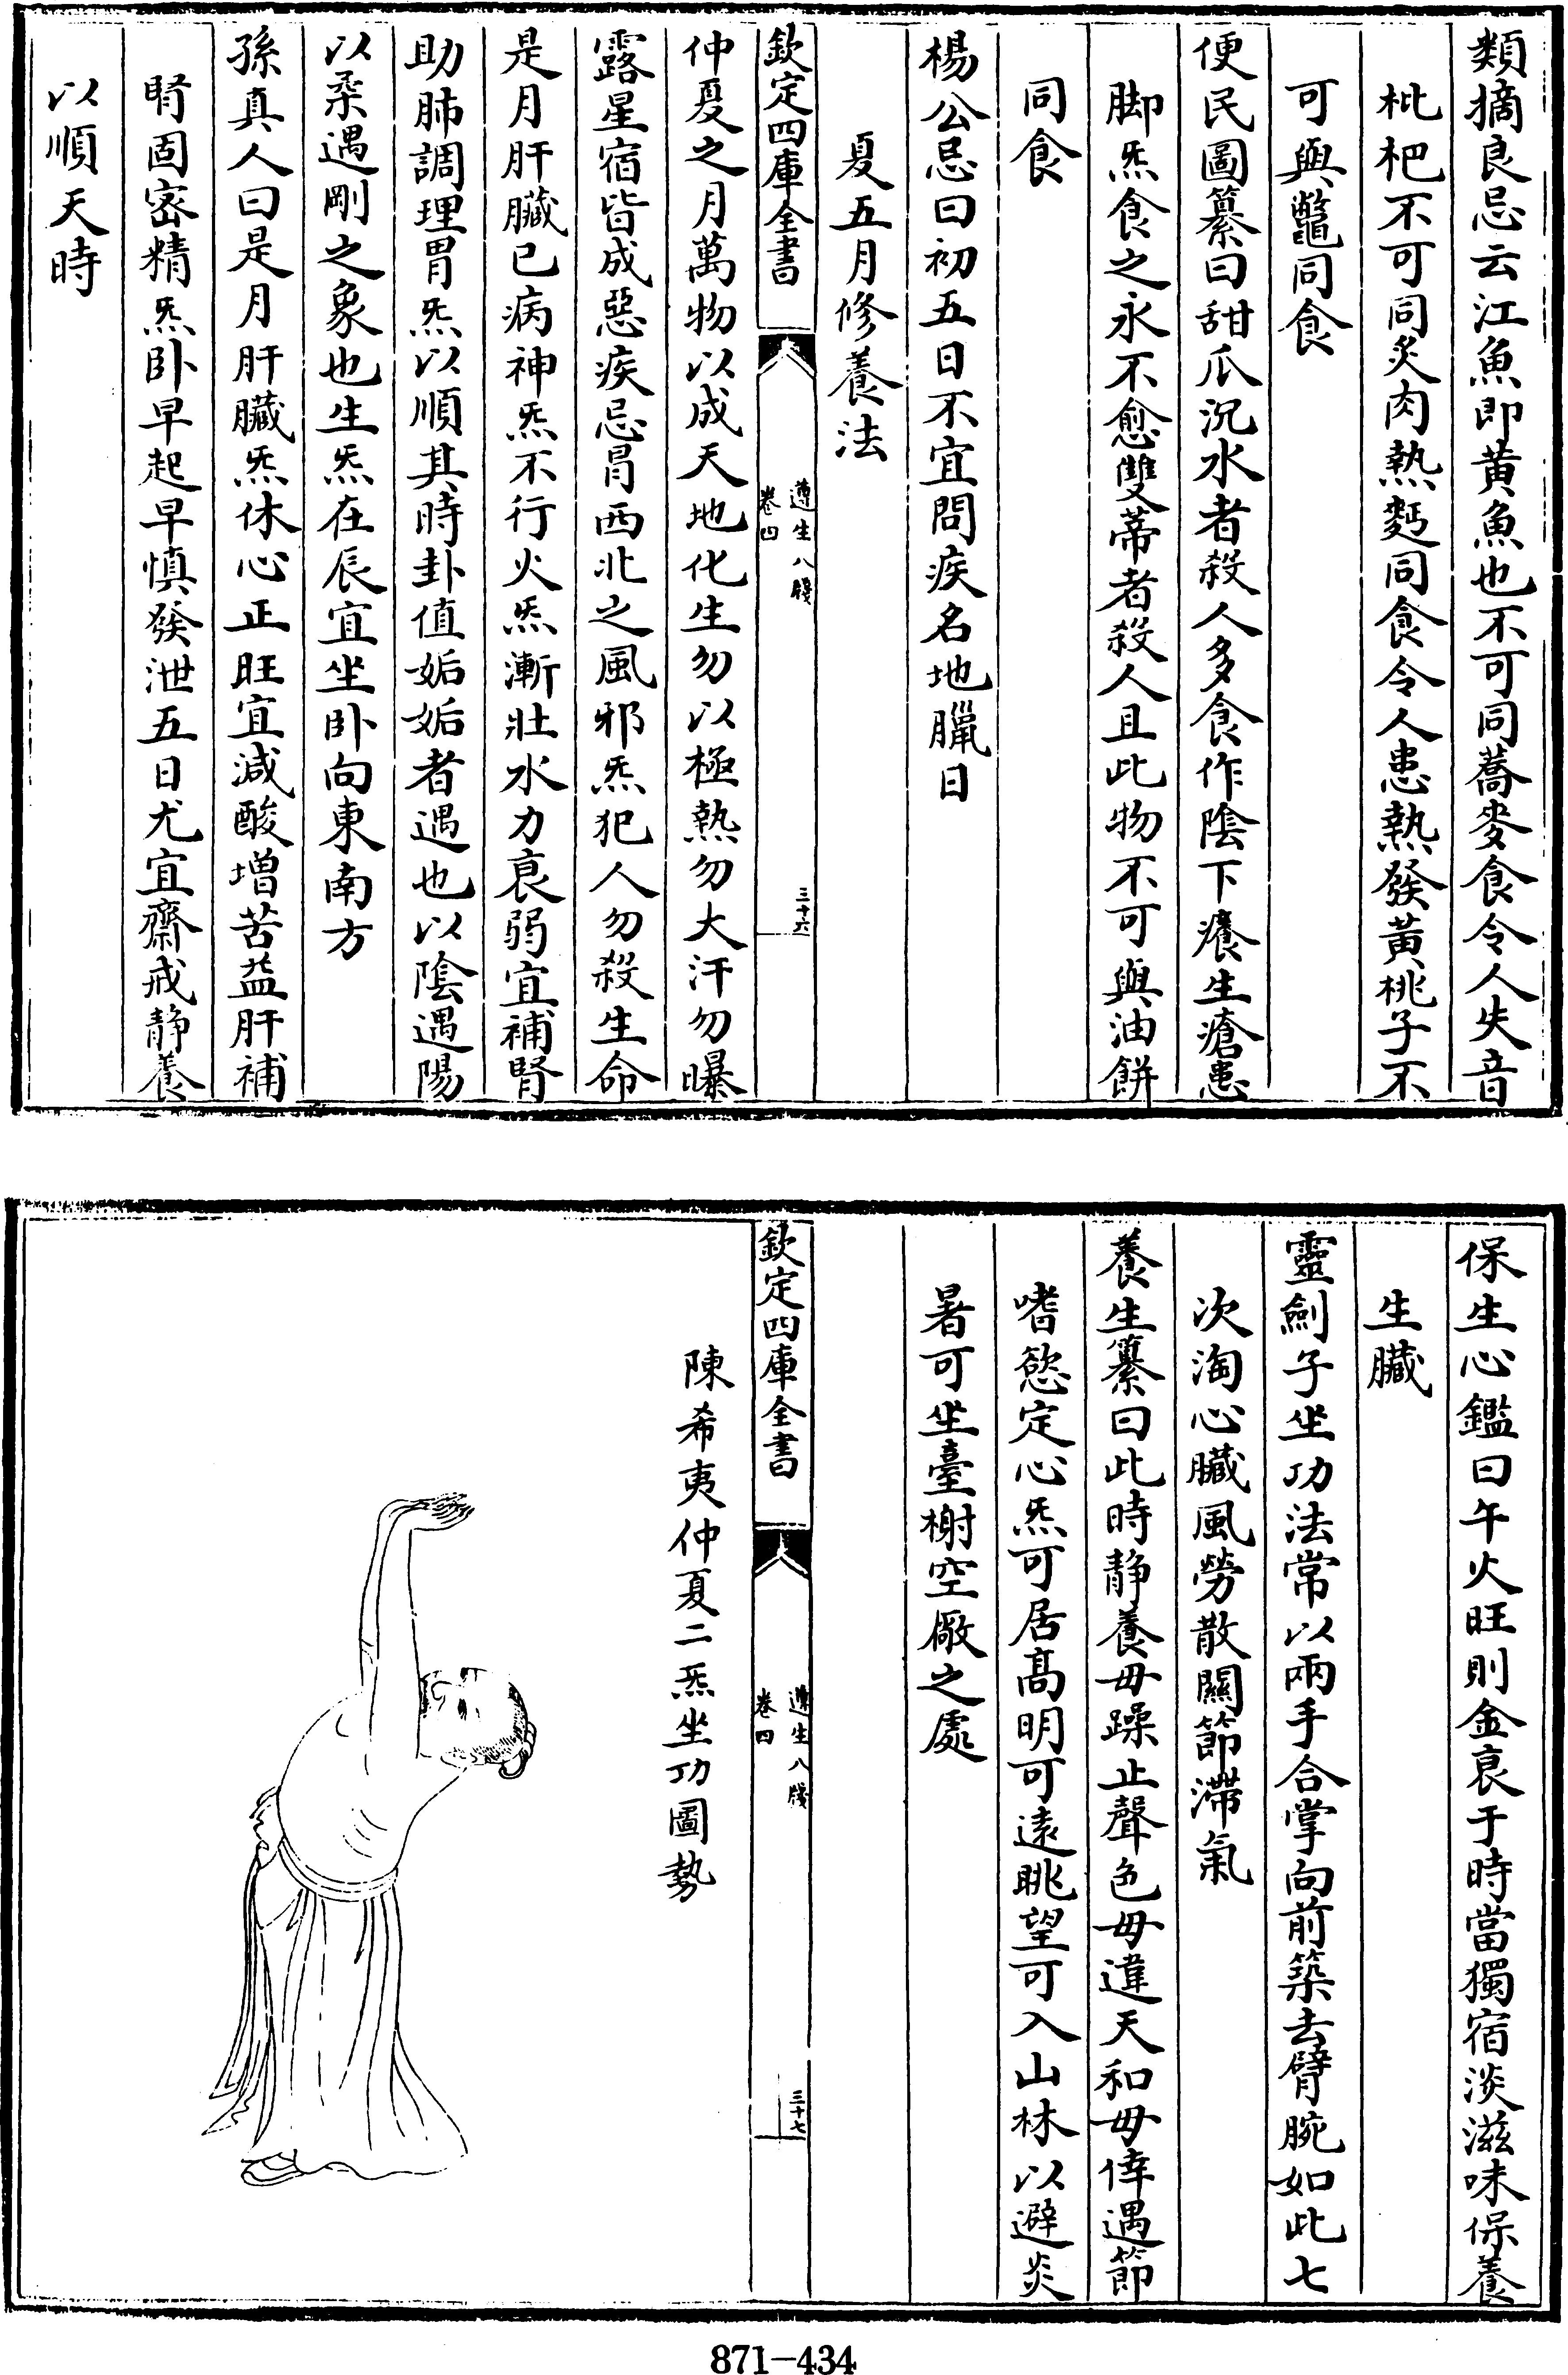 類摘良忌云江魚即黄魚也不可同蕎麥食令人失音
枇杷不可同炙肉熱麪同食令人患熱發黄桃子不
可與鼈同食
便民圖纂曰甜瓜沉水者殺人多食作陰下癢生瘡患
脚炁食之永不愈雙蒂者殺人且此物不可與油餅
同食
楊公忌曰初五日不宜問疾名地臘日
夏五月修養法
欽定四庫全書
遵生八牋
卷四
三十六
仲夏之月萬物以成天地化生勿以極熱勿大汗勿曝
露星宿皆成惡疾忌冐西北之風邪炁犯人勿殺生命
是月肝臟已病神炁不行火炁漸壯水力衰弱宜補腎
助肺調理胃炁以順其時卦值姤姤者遇也以陰遇陽
以柔遇剛之象也生炁在辰宜坐卧向東南方
孫真人曰是月肝臟炁休心正旺宜減酸增苦益肝補
腎固密精炁卧早起早慎發泄五日尤宜齋戒静養
以順天時
保生心鑑曰午火旺則金衰于時當獨宿淡滋味保養
生臟
靈劍子坐功法常以兩手合掌向前築去臂腕如此七
次淘心臟風勞散關節滯氣
養生纂曰此時静養毋躁止聲色毋違天和毋倖遇節
嗜慾定心炁可居髙明可遠眺望可入山林以避炎
暑可坐臺榭空厰之處
欽定四庫全書
遵生八牋
卷四
三十七
陳希夷仲夏二炁坐功圖勢
871-434